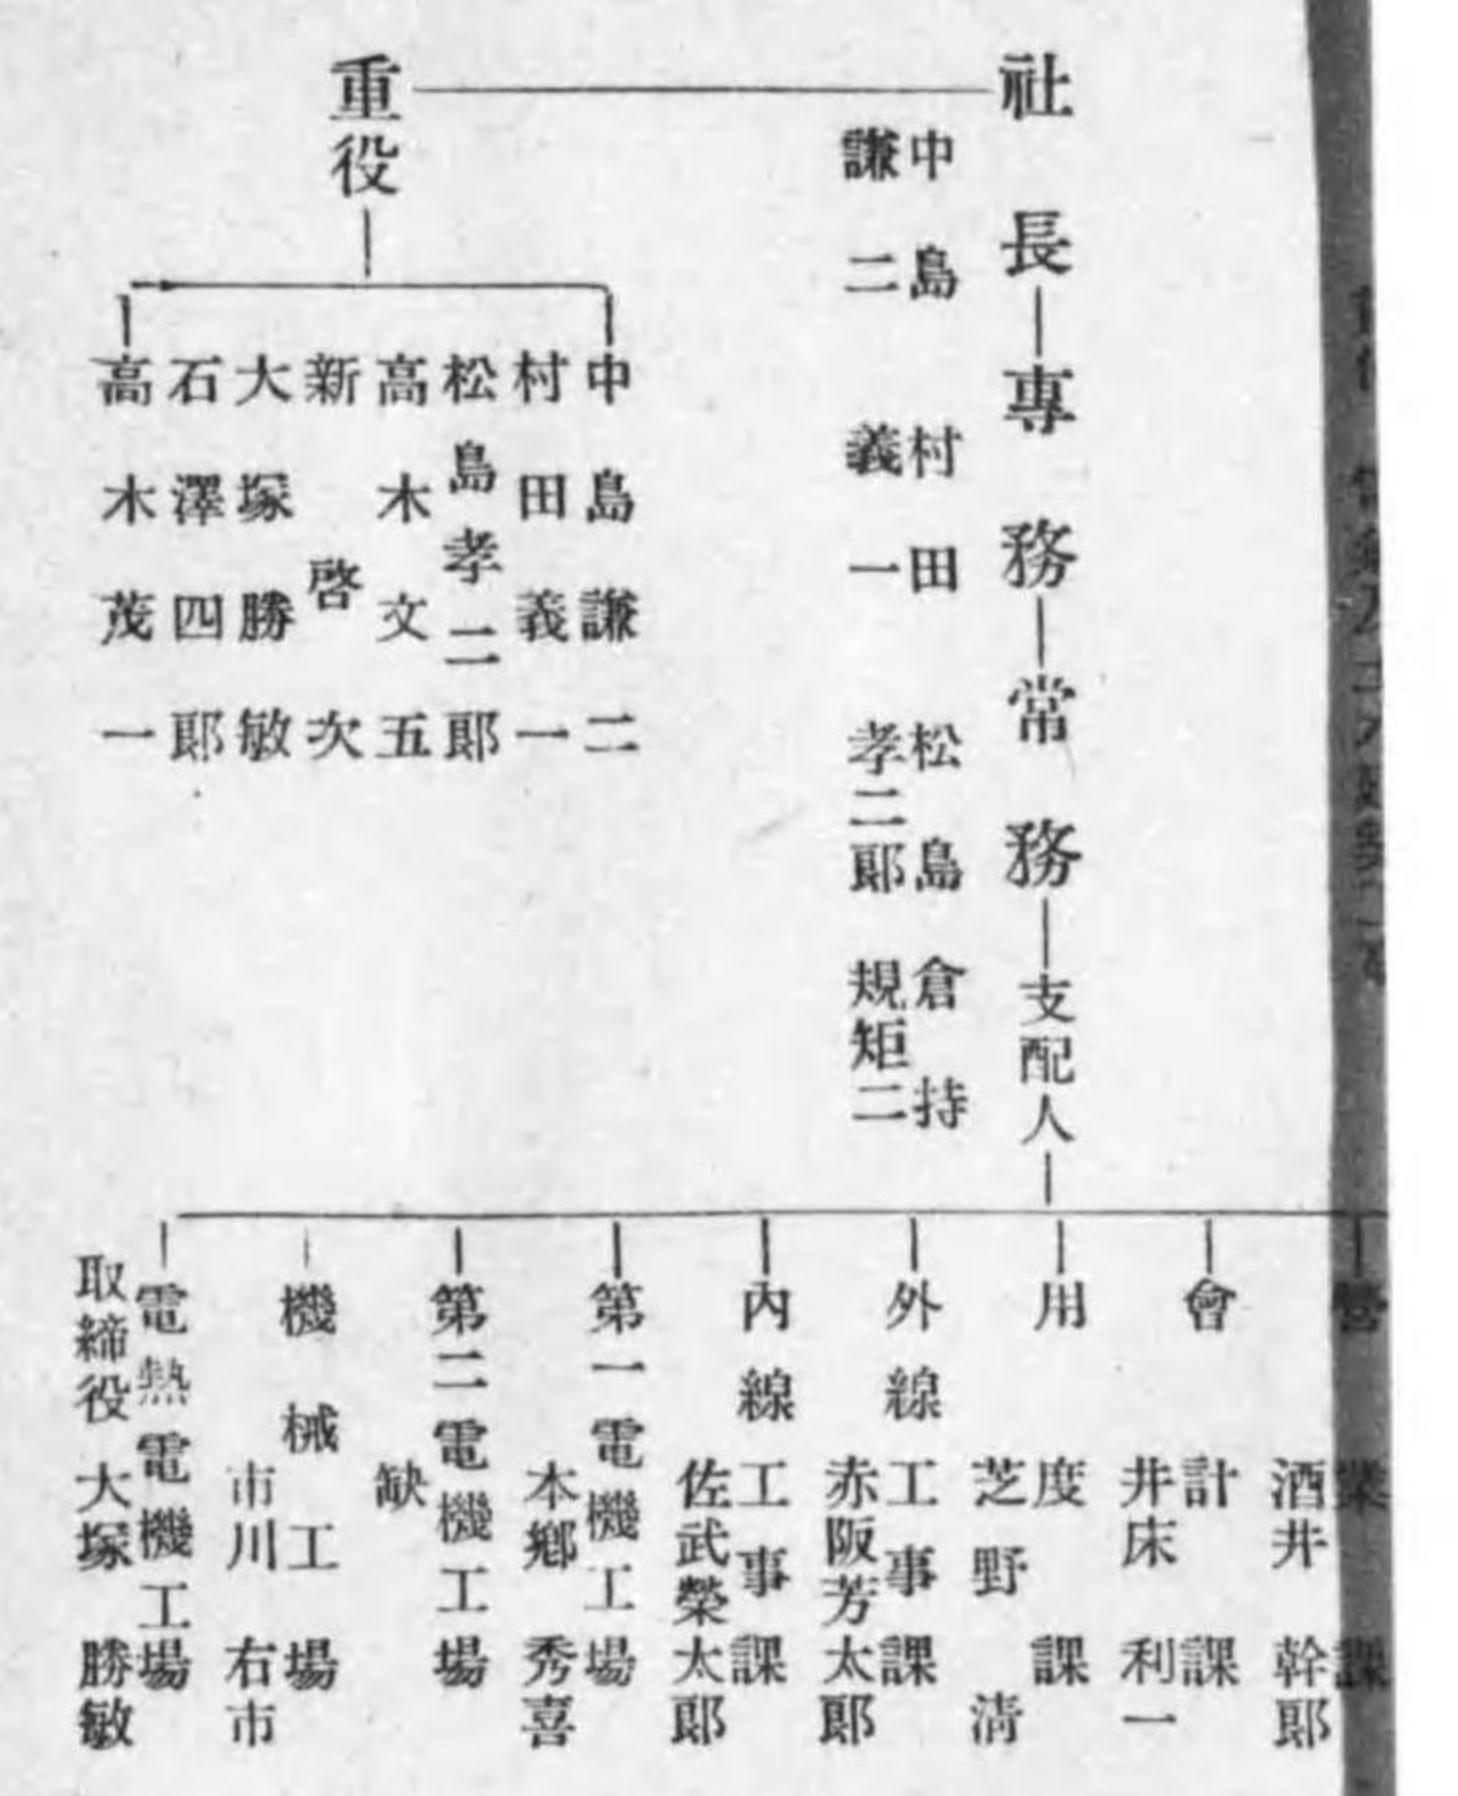 社長―專務―常務―支配人
中島謙二
村田義一
松島孝二郎
倉持規矩二
重役
中島謙二
村田義一
松島孝二郎
高木文五
新啓次
大塚勝敏
石澤四郎
高木茂一
營業課
酒井幹郎
會計課
井床利一
用度課
芝野清
外線工事課
赤阪芳太郎
內線工事課
佐武榮太郎
第一電機工場
本鄕秀喜
第二電機工場
缺
機械工場
市川右市
電熱電機工場
取締役大塚勝敏